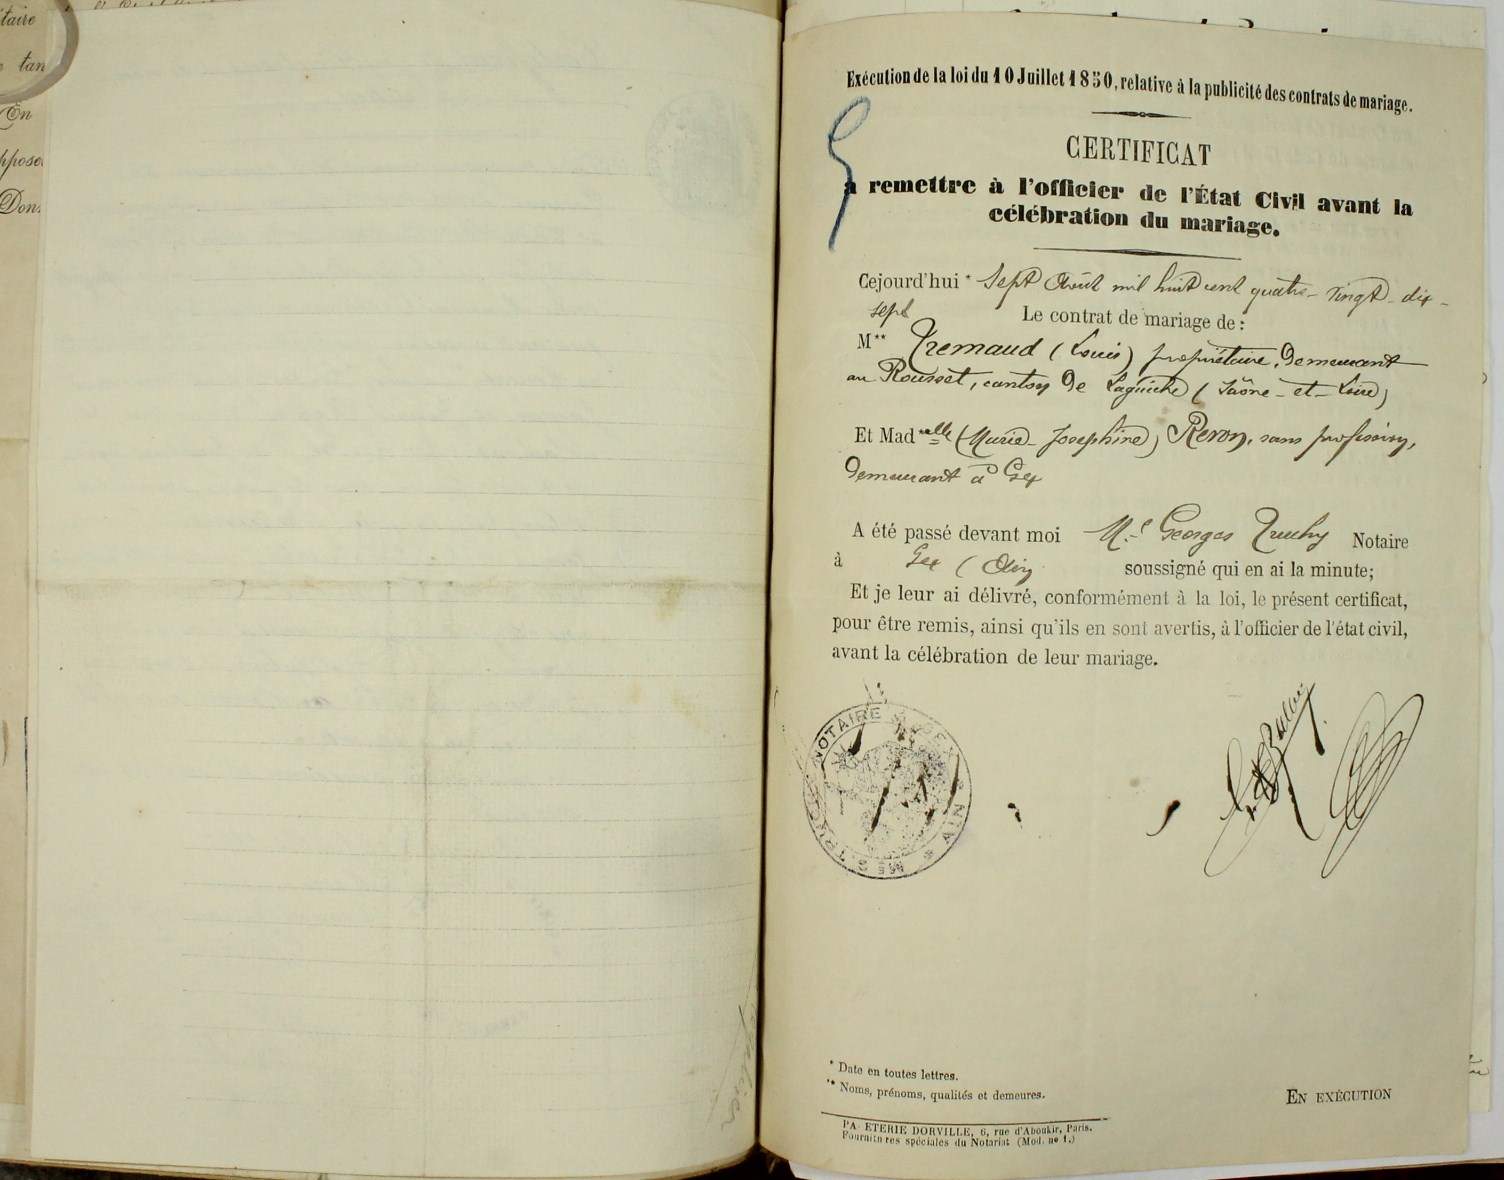 taire
tan
En
ppose
Don
Exécution de la loi du 10 Juillet 1850, relative à la publicité des contrats de mariage.
CERTIFICAT
à remettre à l'officier de l'État Civil avant la
célébration du mariage.
Cejourd'hui * Sept Août mil huit cent quatre-vingt-dix-
sept
Le contrat de mariage de :
M** Tremaud (Louis) propriétaire, demeurant
au Rousset, canton de Laguiche (Saône-et-Loire)
Et Mad**elle (Marie-Joséphine) Peron, sans profession,
demeurant à Gex
A été passé devant moi Me Georges Truchy Notaire
à Gex (Ain) soussigné qui en ai la minute;
Et je leur ai délivré, conformément à la loi, le présent certificat,
pour être remis, ainsi qu'ils en sont avertis, à l'officier de l'état civil,
avant la célébration de leur mariage.
NOTAIRE A GEX * AIN * ME G. TRUCHY
* Date en toutes lettres.
** Noms, prénoms, qualités et demeures.
EN EXÉCUTION
PA ETERIE DORVILLE, 6, rue d'Aboukir, Paris.
Fournitures spéciales du Notariat (Mod. no 1.)